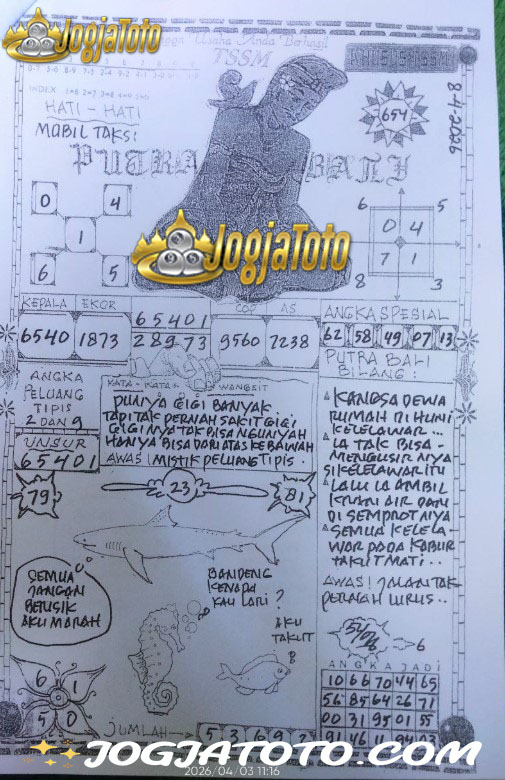 JogjaToto
Usaha Anda Berhasil
TSSM
INDEX
HATI - HATI
MOBIL TAKSI
654
8-4-2026
PUTRA BALI
0 4
1
6 5
6 5
0 4
7 1
8 3
JogjaToto
KEPALA EKOR
65401
COP AS
ANGKA SPESIAL
6540 1873 28973 9560 7238
62 58 49 07 13
PUTRA BALI
BILANG :
ANGKA
PELUANG
TIPIS
2 DAN 9
UNSUR
65401
KATA - KATA WANGSIT
PUNYA GIGI BANYAK
TAPI TAK PERNAH SAKIT GIGI
GIGI NYA TAK BISA NGUNYAH
HANYA BISA DARI ATAS KE BAWAH
AWAS ! MISTIK PELUANG TIPIS
KANGSA DEWA
RUMAH DI HUNI
KELELAWAR...
IA TAK BISA
MENGUSIR NYA
SI KELELAWAR ITU
LALU IA AMBIL
KRAN AIR DAN
DI SEMPROT NYA
SEMUA KELELA
WAR PADA KABUR
TAKUT MATI..
AWAS! JALAN TAK
PERNAH LURUS..
79
23
81
SEMUA
JANGAN
BERISIK
AKU MARAH
BANDENG
KENAPA
KAU LARI ?
AKU
TAKUT
8
6 1
5 0
6
ANGKA JADI
10 66 70 44 65
56 85 64 26 71
00 31 95 01 55
91 46 11 94 03
JUMLAH
5 3 6 9 2
JOGJATOTO.COM
2026/04/03 11:16